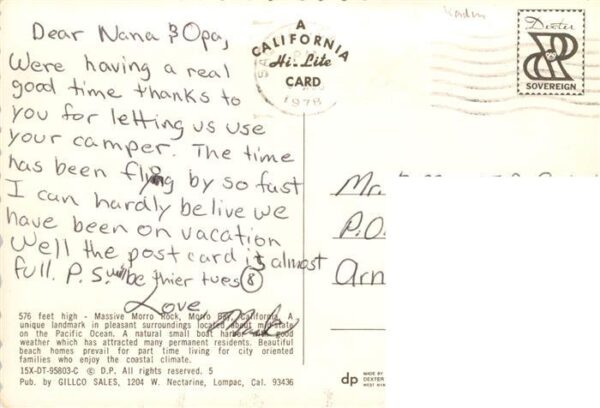 Dear Nana & Opa,
Were having a real
good time thanks to
you for letting us use
your camper. The time
has been flying by so fast
I can hardly belive we
have been on vacation
Well the post card is almost
full. P.S. will be thier tues 8
Love
Mike
A
CALIFORNIA
Hi-Lite
CARD
1978
Dexter
SOVEREIGN
Mr.
P.O.
Arn
576 feet high - Massive Morro Rock, Morro Bay, California. A
unique landmark in pleasant surroundings located about mid-state
on the Pacific Ocean. A natural small boat harbor with good
weather which has attracted many permanent residents. Beautiful
beach homes prevail for part time living for city oriented
families who enjoy the coastal climate.
15X-DT-95803-C © D.P. All rights reserved. 5
Pub. by GILLCO SALES, 1204 W. Nectarine, Lompac, Cal. 93436
dp MADE BY
DEXTER
WEST